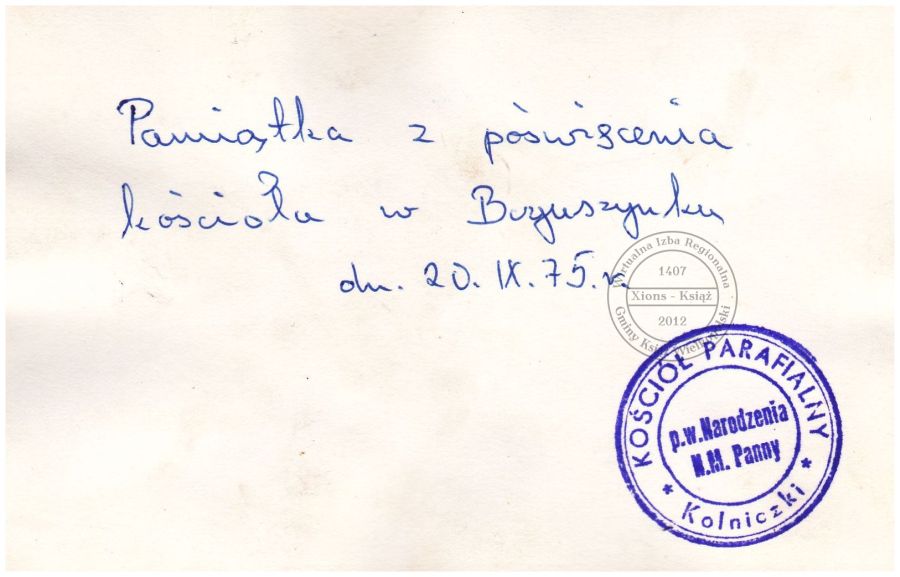 Pamiątka z poświęcenia
kościoła w Boguszynku
dn. 20. IX. 75. r.
Wirtualna Izba Regionalna
1407
Xions - Książ
2012
Gminy Książ Wielkopolski
KOŚCIÓŁ PARAFIALNY
p.w. Narodzenia
N.M. Panny
* Kolniczki *